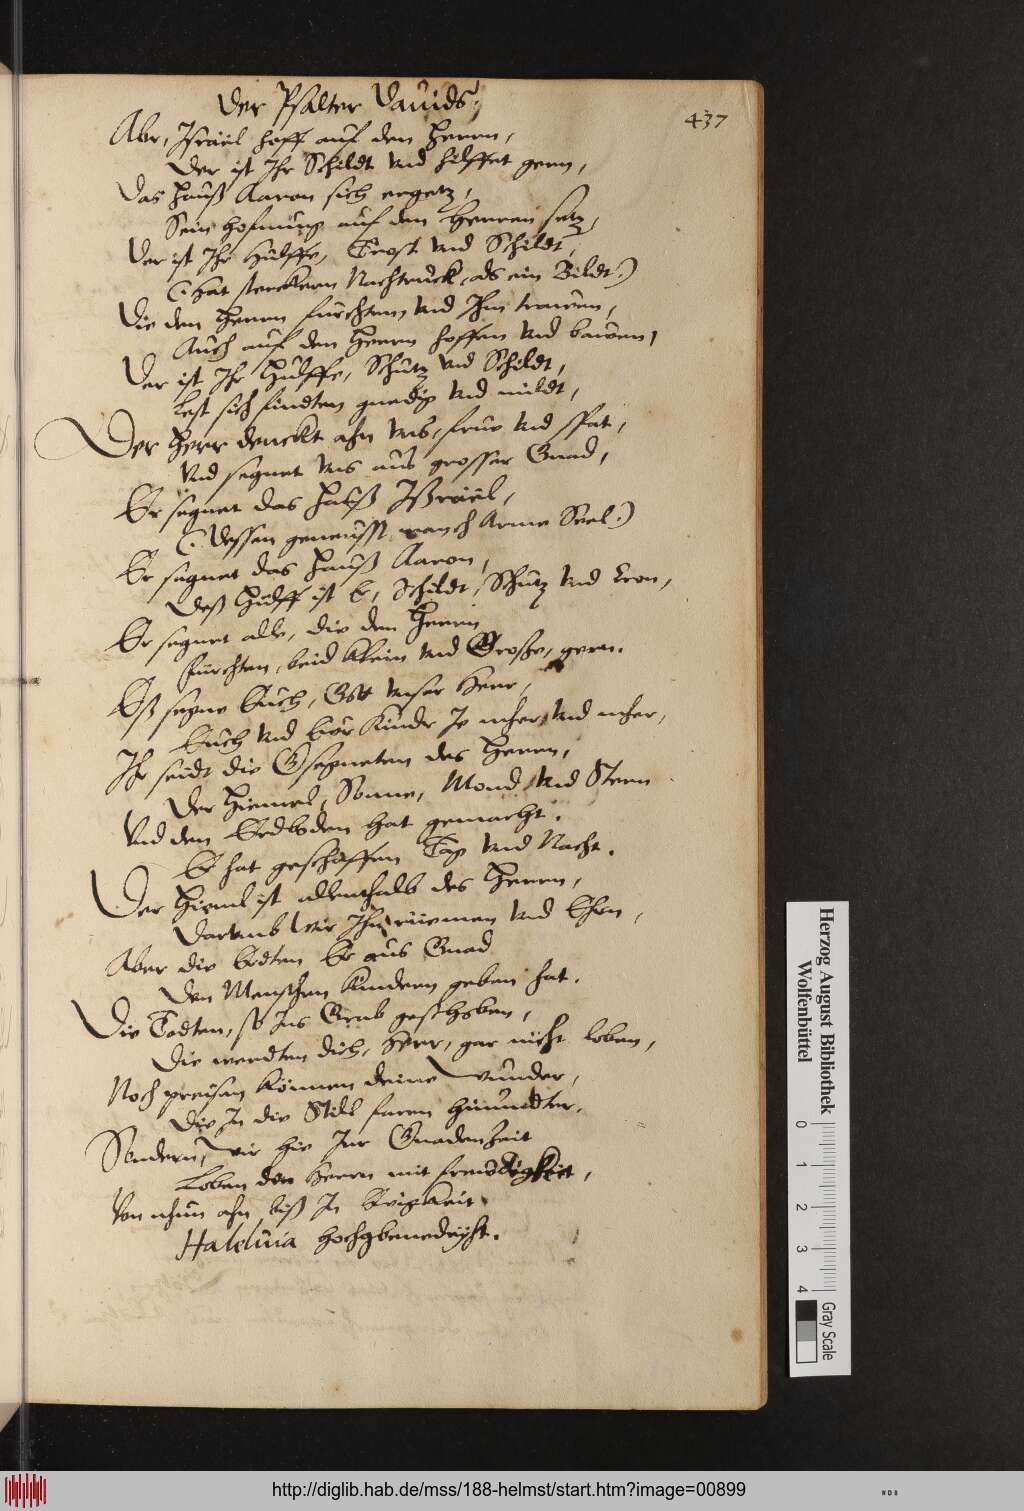 Der Psalter Dauids.
437
Abr, Israel hoff auf den Herrn,
Der ist Ihr Schildt vnd hilffet gern,
Das Hauß Aaron sich ergetz,
Sein hofnung auf den Herren setz,
Der ist Ihr Hülffe, Trost vnd Schildt,
(: hat sterckern Nachtruck, als ein Bildt :)
Die den Herrn fürchten, vnd Ihm trawen,
Auch auf den Herrn hoffen vnd bawen,
Der ist Ihr Hülffe, Schutz vnd Schildt,
Lest sich findten gnedig vnd mildt,
Der Herr denckt ahn vns, frue vnd spat,
Vnd segnet vns aus grosser Gnad,
Er segnet das Hauß Ißrael,
(: dessen geneusst manch Arme Seel :)
Er segnet das Hauß Aaron,
Deß Hülff ist E, Schildt, Schutz vnd Cron,
Er segnet alle, die den Herrn
fürchten, beid Klein vnd Große, gern.
Eß segne Euch, Gott vnser Herr,
Euch vnd Eur Kinder Je mher vnd mher,
Ihr seidt die Gsegneten des Herrn,
Der Hiemel, Sonne, Mond vnd Stern
Vnd den Erdboden hat gemacht.
Er hat geschaffen Tag vnd Nacht.
Der Hieml ist allenthalb des Herrn,
Darumb wir Ihn rüemen vnd Ehrn,
Aber die Erdten Er aus Gnad
Den Menschen Kindern geben hat.
Die Todten, so Ins Grab geschoben,
Die werdten dich, Herr, gar nicht loben,
Noch preisen können deine wunder,
Die In die Still faren hinundter.
Sondern, wir hie Inr Gnadenzeit
Loben den Herrn mit frewdigkeit,
Von nhun ahn biß In Ewigkeit
Haleluia hochgbenedeyht.
Herzog August Bibliothek
Wolfenbüttel
0 1 2 3 4
Gray Scale
http://diglib.hab.de/mss/188-helmst/start.htm?image=00899